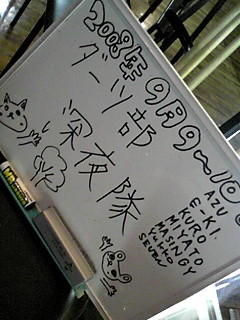 2008年 9月9~10日
ダーツ部
深夜隊
AZU
E-KI.
KURO
MIYATO
MASINGY
YUKKO
SEVEN